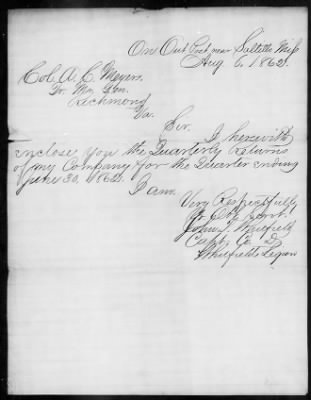 On Out Post near Saltillo Miss
Aug 6, 1862.
Col. A. C. Meyers,
Qr. Mr. Gen.
Richmond
Va.
Sir. I herewith
enclose you the Quarterly Returns
of my Company for the Quarter ending
June 30, 1862. I am.
Very Respectfully
Yr. Obt. Servt.
John T. Whitfield
Capt. Co. D
Whitfield's Legion